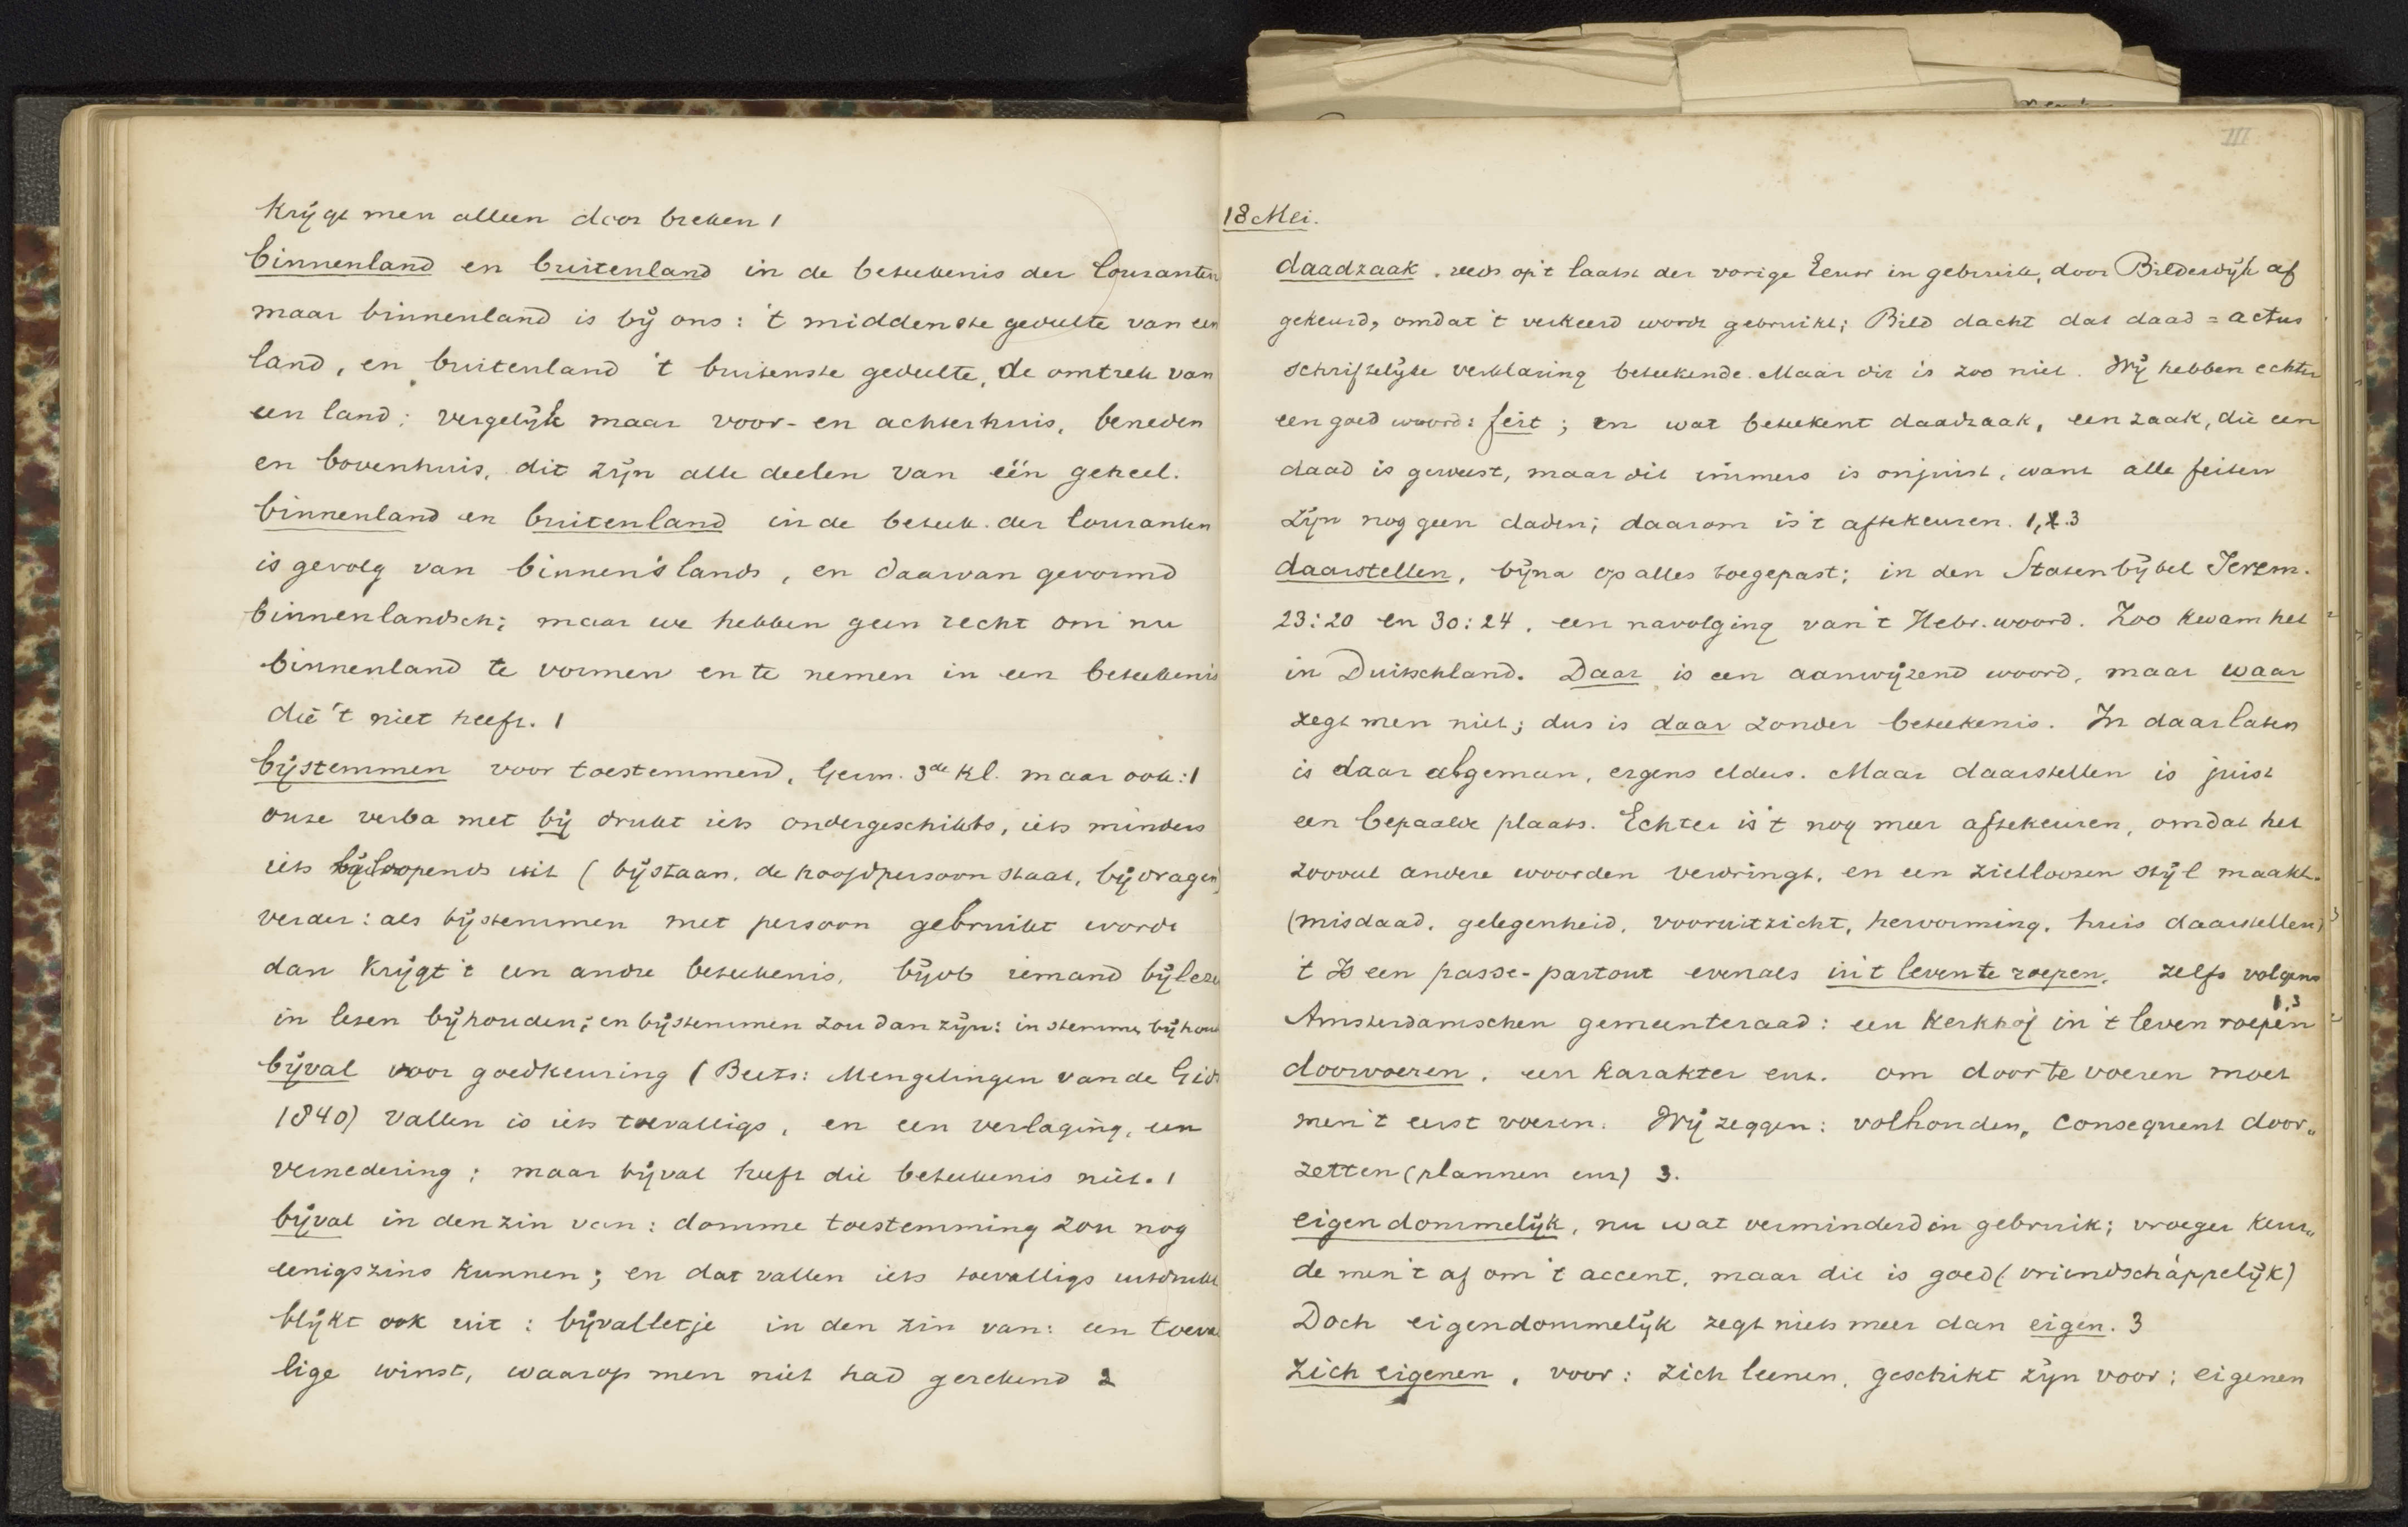 Krijgt men alleen door breken 1
binnenland en buitenland in de beteekenis der Couranten
maar binnenland is bij ons: 't middenste gedeelte van een
land, en buitenland 't buitenste gedeelte, de omtrek van
een land; vergelijk maar voor- en achterhuis, beneden
en bovenhuis, dit zijn alle deelen van één geheel.
binnenland en buitenland in de beteek. der Couranten
is gevolg van binnen's lands, en daarvan gevormd
binnenlandsch; maar we hebben geen recht om nu
binnenland te vormen en te nemen in een beteekenis
die 't niet heeft. 1
bijstemmen voor toestemmend, Germ. 3de Kl. maar ook: 1
onze verba met bij drukt iets ondergeschikts, iets minders
iets bijloopends uit (bijstaan, de hoofdpersoon staat, bijdragen)
verder: als bijstemmen met persoon gebruikt wordt
dan krijgt 't een andre beteekenis, bijvb iemand bijleze
in lezen bijhouden; en bijstemmen zou dan zijn: in stemmen bijhou
bijval voor goedkeuring (Beets: Mengelingen van de Gids
1840) Vallen is iets toevalligs, en een verlaging, een
vernedering; maar bijval heeft die beteekenis niet. 1
bijval in den zin van: domme toestemming zou nog
eenigszins kunnen; en dat vallen iets toevalligs uitdrukt
blijkt ook uit: bijvalletje in den zin van: een toeval
lige winst, waarop men niet had gerekend 2
III
18 Mei.
daadzaak, reeds op 't laatst der vorige Eeuw in gebruik, door Bilderdijk af
gekeurd, omdat 't verkeerd wordt gebruikt; Bild dacht dat daad = actus
schriftelijke verklaring beteekende. Maar dit is zoo niet. Wij hebben echter
een goed woord: feit; en wat beteekent daadzaak, een zaak, die een
daad is geweest, maar dit immers is onjuist, want alle feiten
zijn nog geen daden; daarom is 't aftekeuren. 1, 2. 3
daarstellen, bijna op alles toegepast; in den Statenbijbel Jerem.
23:20 en 30:24, een navolging van 't Hebr. woord. Zoo kwam het
in Duitschland. Daar is een aanwijzend woord, maar waar
zegt men niet; dus is daar zonder beteekenis. In daarlaten
is daar algemeen, ergens elders. Maar daarstellen is juist
een bepaalde plaats. Echter is 't nog meer aftekeuren, omdat het
zooveel andere woorden verdringt, en een zielloozen stijl maakt.
(misdaad, gelegenheid, vooruitzicht, hervorming, huis daarstellen)
't Is een passe-partout evenals in 't leven te roepen, zelfs volgens
1,3
Amsterdamschen gemeenteraad: een Kerkhof in 't leven roepen
doorvoeren, een karakter enz. om door te voeren moet
men 't eerst voeren. Wij zeggen: volhouden, consequent door„
zetten (plannen enz) 3.
eigendommelijk, nu wat verminderd in gebruik; vroeger keur„
de men 't af om 't accent, maar die is goed (vriendscháppelijk)
Doch eigendommelijk zegt niets meer dan eigen. 3
zich eigenen, voor: zich leenen, geschikt zijn voor; eigenen